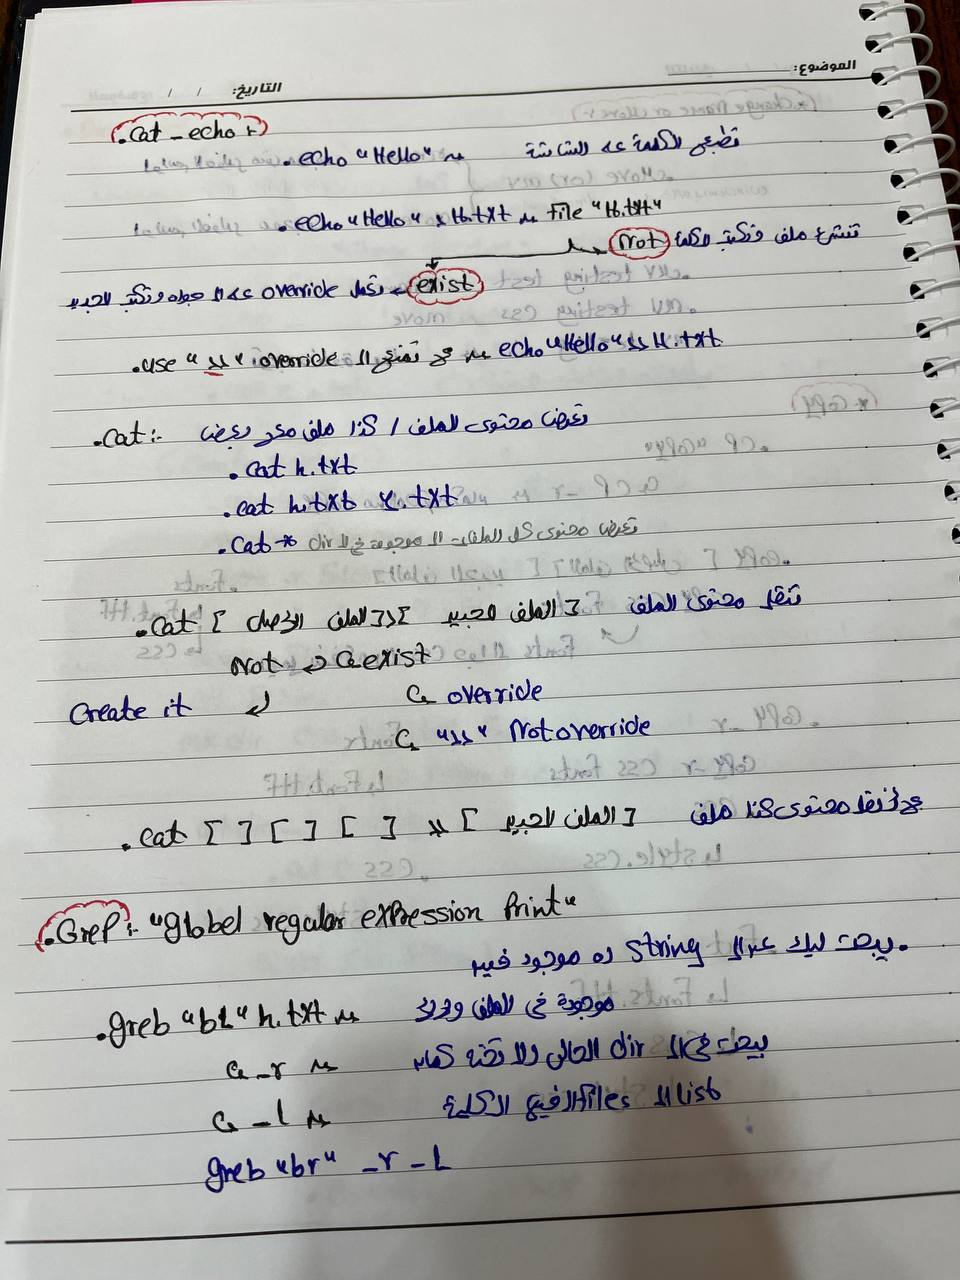 الموضوع:
التاريخ: / /
.Cat _ echo :-
.echo "Hello" → تطبعلى الكلمة على الشاشة
.echo "Hello" > H.txt → file "H.txt"
Not تنشئ ملف وتكتب الكلمة
exist → تعمل override على ال جواه وتكتب الجديد
.use ">>" عشان تمنع ال override → echo "Hello" >> H.txt
.Cat :- تعرض محتوى الملف / كذا ملف مع بعض
.cat h.txt
.cat h.txt r.txt
.Cat * تعرض محتوى كل الملفات ال موجودة في ال dir
.cat [الملف الأصل] > [الملف الجديد] تنقل محتوى الملف
Not ↵ exist
Create it ↵ override
">>" Not override
.cat [ ] [ ] [ ] >> [الملف الجديد] عشان ننقل محتوى كذا ملف
.Grep :- "Globel regular expression Print"
.يبحث ليك عن ال String ده موجود فين
.greb "br" h.txt → موجودة في الملف ولا لا
_r → يبحث في ال dir الحالي ولا تحته كمان
_l → list ال files الفيها الكلمة
greb "br" _r _L